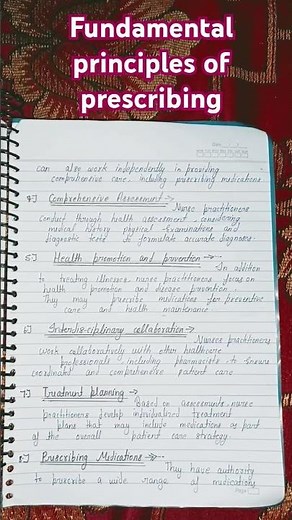 Fundamental
principles of
prescribing
Date
can also work independently in providing
comprehensive care including prescribing medications.
4) Comprehensive Assessment →
Nurse practitioners
conduct through health assessment, considering
medical history, physical examinations and
diagnostic tests to formulate accurate diagnosis.
5) Health promotion and prevention →
In addition
to treating illnesses, nurse practitioners focus on
health promotion and disease prevention.
They may prescribe medications for preventive
care and health maintenance.
6) Interdisciplinary collaboration →
Nurses practitioners
work collaboratively with other healthcare
professionals, including pharmacists to ensure
coordinated and comprehensive patient care
7) Treatment planning →
Based on assessments, nurse
practitioners develop individualized treatment
plans that may include medications as part
of the overall patient care strategy.
8) Prescribing Medications →
They have authority
to prescribe a wide range of medications
Page